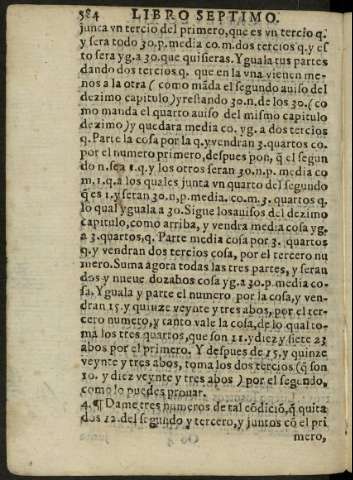 584 LIBRO SEPTIMO.
junta vn tercio del primero, que es vn tercio q.
y sera todo 30.p.media co.m.dos tercios q.y es
to sera yg.a 30.que quisieras.Yguala tus partes
dando dos tercios q. que en la vna vienen me-
nos a la otra ( como mãda el segundo auiso del
dezimo capitulo)y restando 30.n.de los 30.( co
mo manda el quarto auiso del mismo capitulo
dezimo )y quedara media co. yg. a dos tercios
q. Parte la cosa por la q.y vendran 3.quartos co.
por el numero primero, despues pon, q̃ el segun
do n.sea 1.q.y los otros seran 30.n.p. media co
m.1.q.a los quales junta vn quarto del segundo
q̃ es 1.y seran 30.n,p.media. co.m.3. quartos q.
lo qual yguala a 30.Sigue los auisos del dezimo
capitulo, como arriba, y vendra media cosa yg.
a 3.quartos,q. Parte media cosa por 3. quartos
q.y vendran dos tercios cosa, por el tercero nu
mero.Suma agora todas las tres partes, y seran
dos y nueue dozabos cosa yg.a 30.p.media co-
sa.Yguala y parte el numero por la cosa,y ven-
dran 15.y quinze veynte y tres abos, por el ter-
cero numero,y tanto vale la cosa,de lo qual to-
ma los tres quartos,que son 11.y diez y siete 23
abos por el primero. Y despues de 15.y quinze
veynte y tres abos, toma los dos tercios (q̃ son
10. y diez veynte y tres abos ) por el segundo,
como lo puedes prouar.
4.¶ Dame tres numeros de tal cõdiciõ,q̃ quita
dos 12.del segundo y tercero,y juntos cõ el pri
mero,